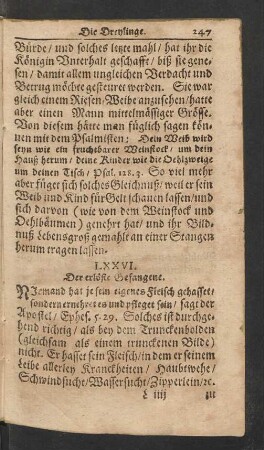 Die Dreylinge. 247
Bürde/ und solches letzte mahl/ hat ihr die
Königin Vnterhalt geschafft/ biß sie gene-
sen/ damit allem ungleichen Verdacht und
Betrug möchte gesteuret werden. Sie war
gleich einem Riesen-Weibe anzusehen/ hatte
aber einen Mann mittelmässiger Grösse.
Von diesem hätte man füglich sagen kön-
nen mit dem Psalmisten: Dein Weib wird
seyn wie ein fruchtbarer Weinstock/ um dein
Hauß herum/ deine Kinder wie die Oehlzweige
um deinen Tisch/ Psal. 128. 3. So viel mehr
aber füget sich solches Gleichnuß/ weil er sein
Weib und Kind für Gelt schauen lassen/ und
sich darvon (wie von dem Weinstock und
Oehlbäumen) genehrt hat/ und ihr Bild-
nuß Lebensgroß gemahlt an einer Stangen
herum tragen lassen.
LXXVI.
Der erlöste Gefangene.
NIemand hat je sein eigenes Fleisch gehasset/
sondern ernehret es und pfleget sein/ sagt der
Apostel/ Ephes. 5. 29. Solches ist durchge-
hend richtig/ als bey dem Trunckenbolden
(gleichsam als einem trunckenen Bilde)
nicht. Er hasset sein Fleisch/ in dem er seinem
Leibe allerley Kranckheiten/ Hauptwehe/
Schwindsucht/ Wassersucht/ Zipperlein/ ꝛc.
L iiij zu